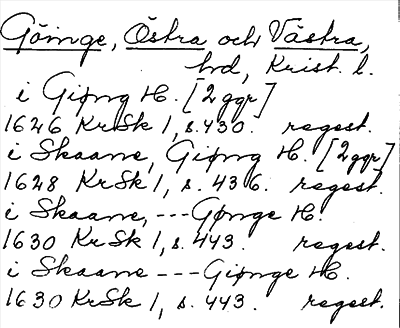 Göinge, Östra och Västra,
hd, Krist. l.
i Giøng H. [2 ggr]
1626 KrSk 1, s. 430. regest.
i Skaane, Giøng H. [2 ggr]
1628 KrSk 1, s. 436. regest.
i Skaane, --- Gønge H.
1630 KrSk 1, s. 443. regest.
i Skaane --- Giønge H.
1630 KrSk 1, s. 443. regest.